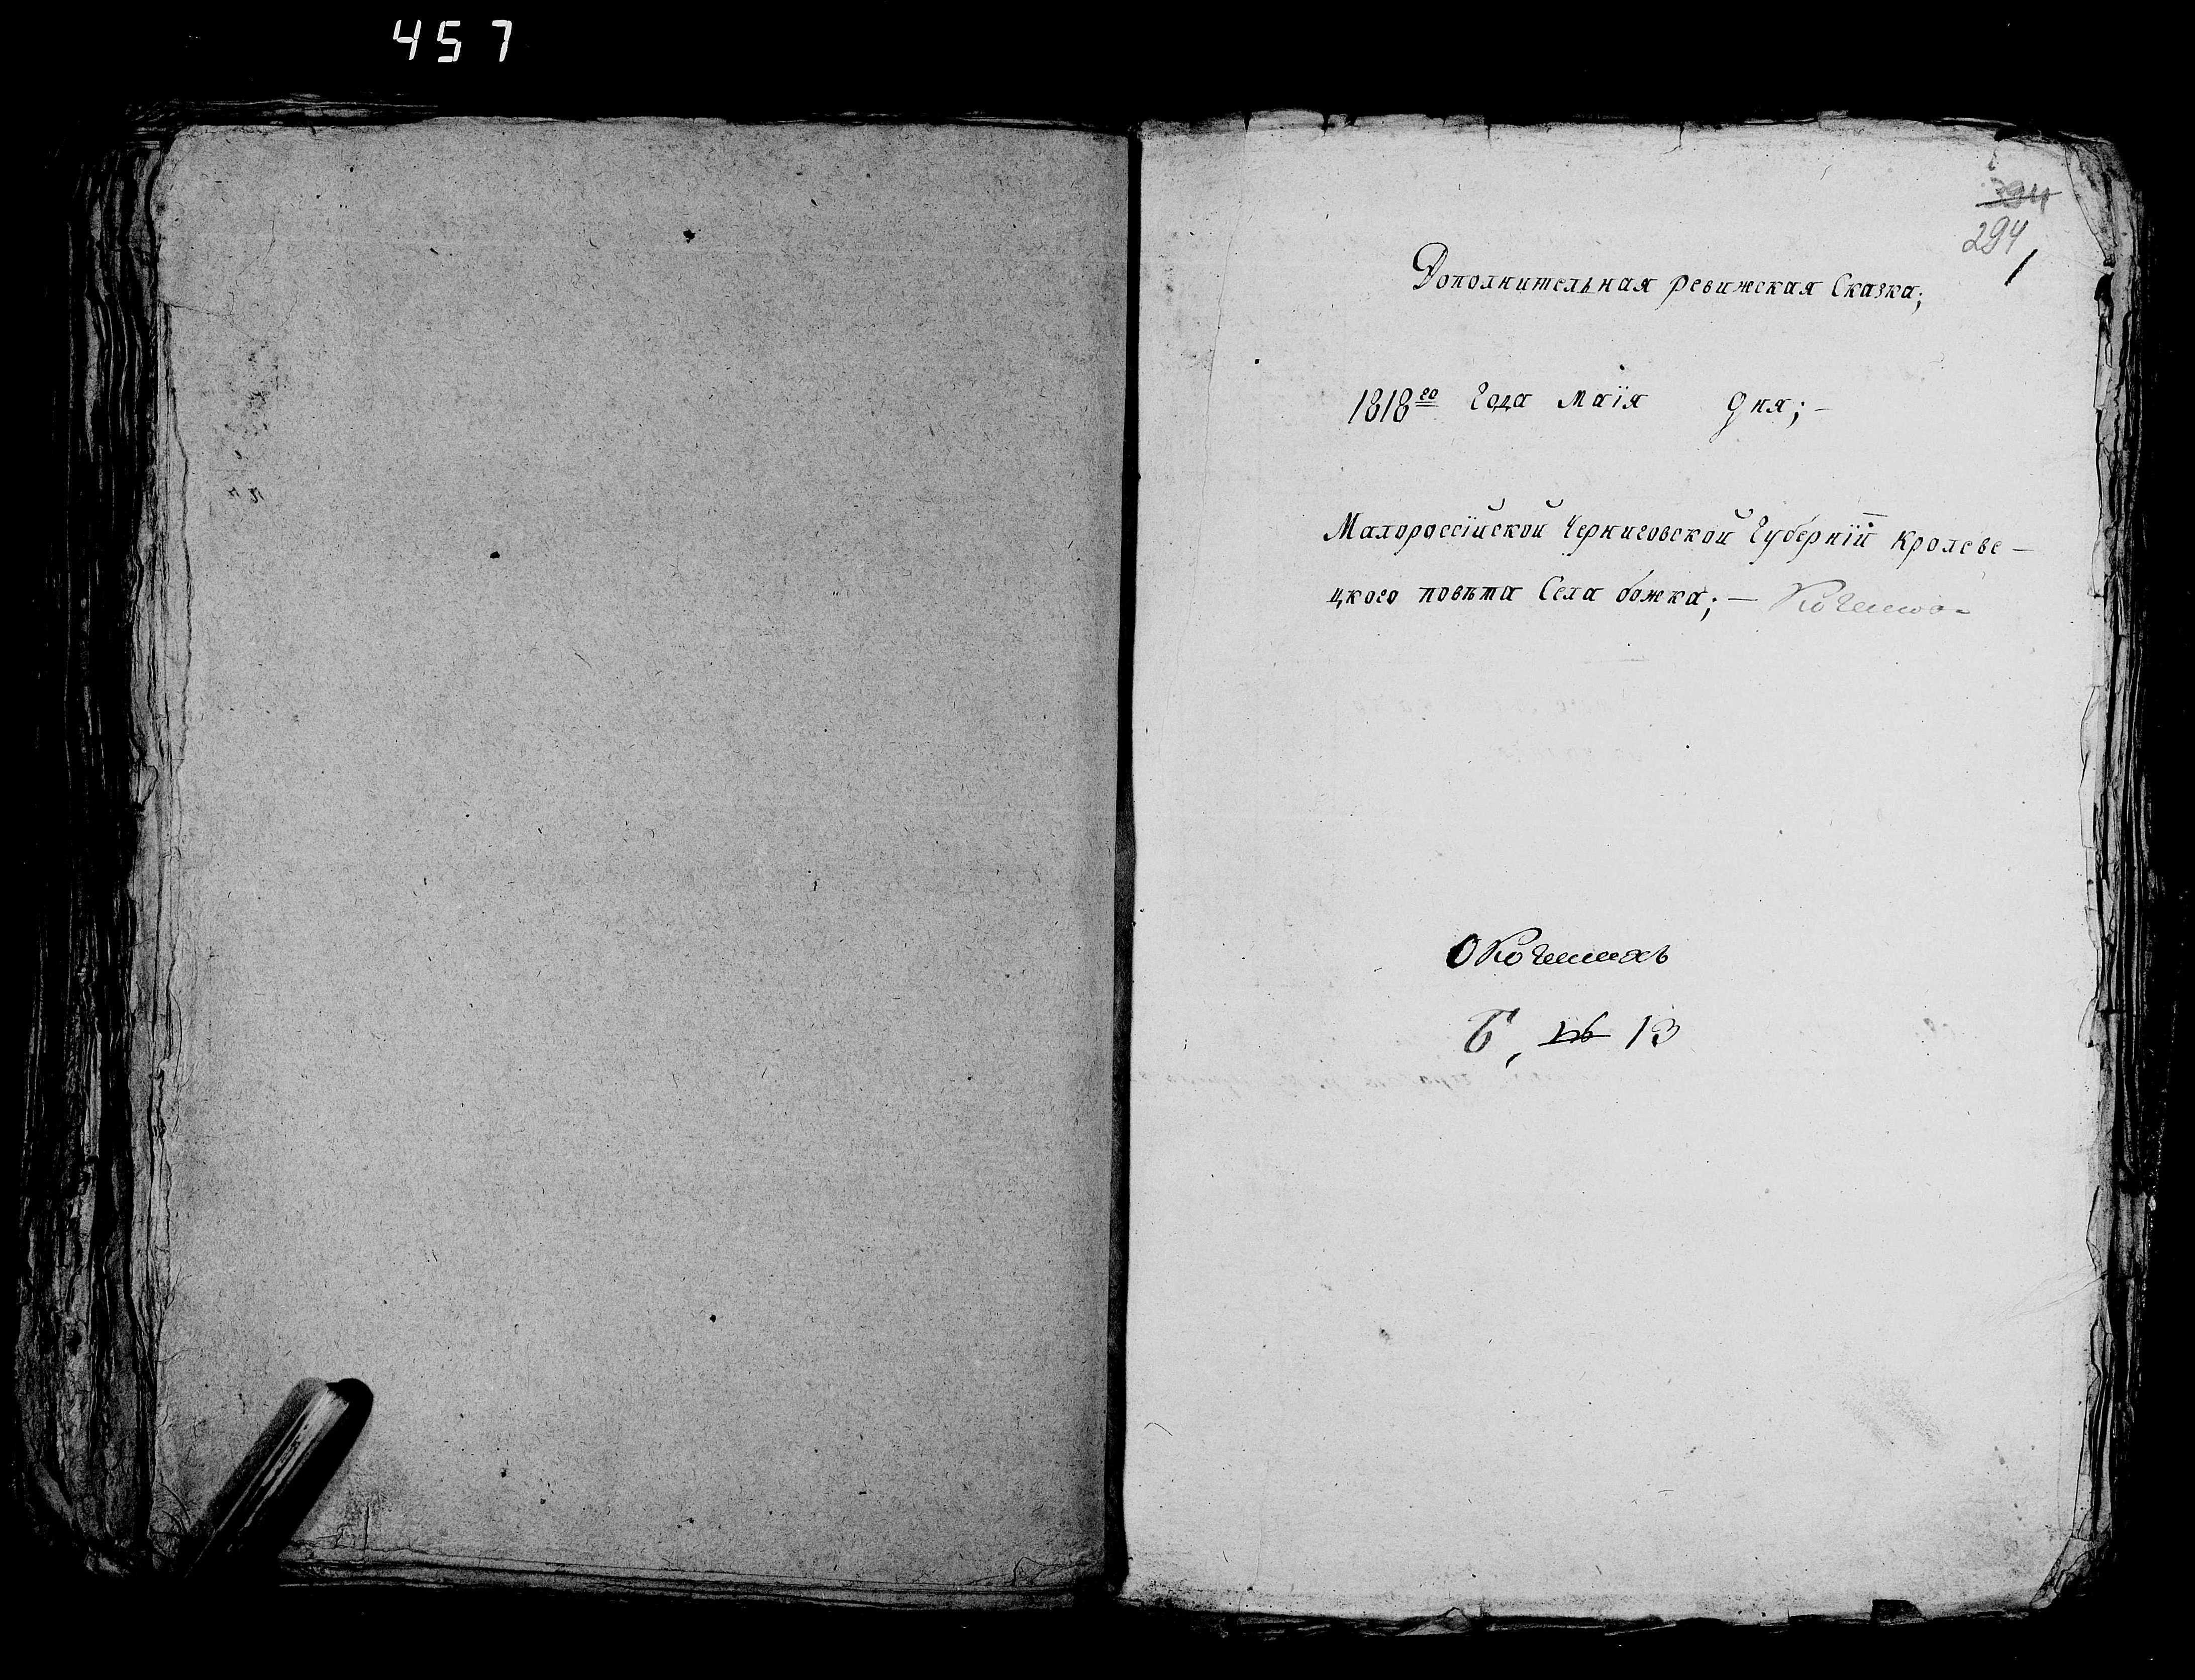 457
394
294
1
Дополнительная ревижская Сказка;
1818го Года маїя дня; —
Малороссїйской Черниговской Губернїи кролеве —
цкого повѣта Села божка; —
О
Б, 13